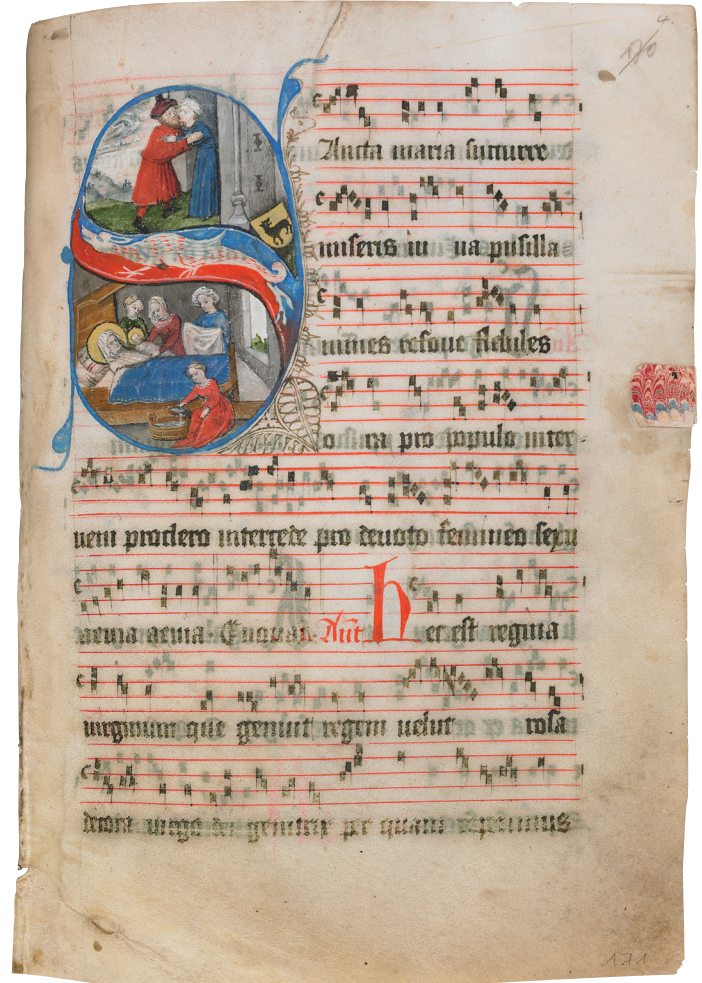 4.
170
Ancta maria succurre
miseris iu ua pusilla
nimes refoue flebiles
ora pro populo inter
ueni pro clero intercede pro deuoto femineo sexu
aeuia aeuia. Ant H ec est regina
uirginum que genuit regem uelut rosa
decora uirgo dei genitrix per quam reperimus
171